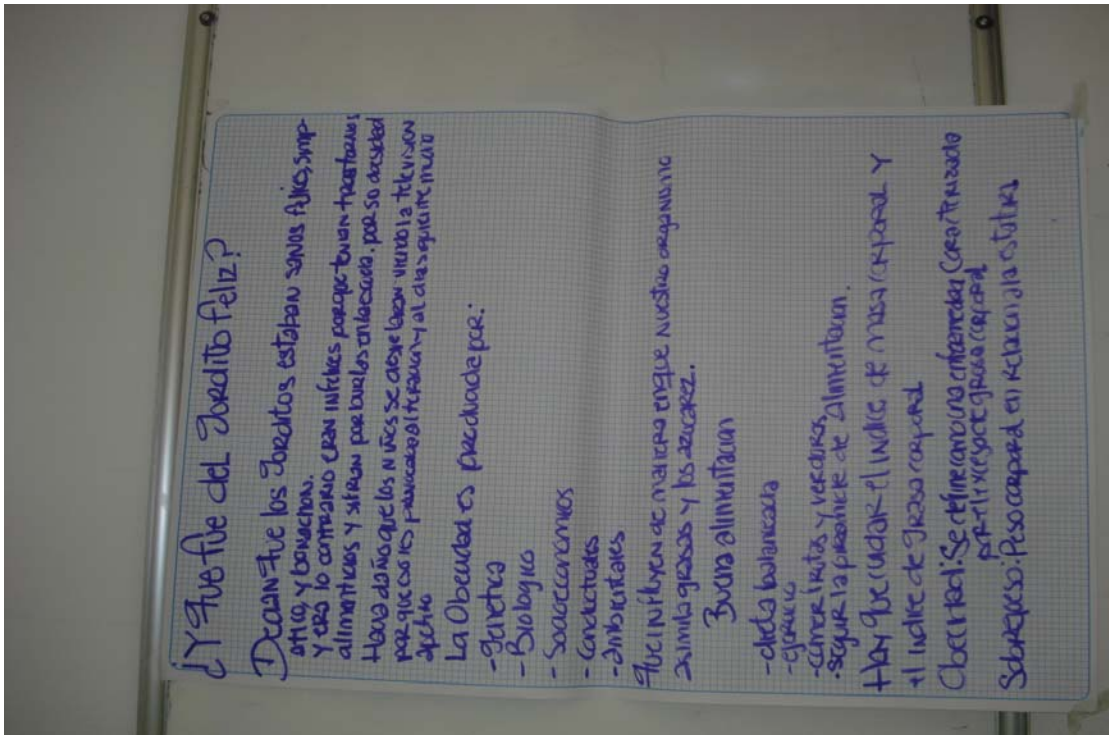 ¿Y que fue del Gordito Feliz?
Decian que los Gorditos estaban sanos felices, simp-
atico, y bonachon.
y era lo contrario eran infelices porque tenian trastornos
alimenticios y sufrian por burlas en la escuela, por su obesidad
Hacia daño que los niñes se desvelaran viendo la television
porque eso les provocaba alteracion y al dia siguiente mucho
apetito
La Obecidad es producida por:
- Genetica
- Biologico
- Socioeconomicos
- Conductuales
- Ambientales
que influyen de manera en que nuestro organismo
asimila grasas y los azucarez.
Buena alimentacion
- dieta ballanceada
- ejercicio
- comer frutas y verduras,
- seguir la piramide de Alimentacion.
Hay que cuidar el indice de masa corporal y
el indice de grasa corporal
Obecidad: Se define como una enfermedad caracterizada
por el exceso de grasa corporal
Sobrepeso: Peso corporal en relacion a la estatura